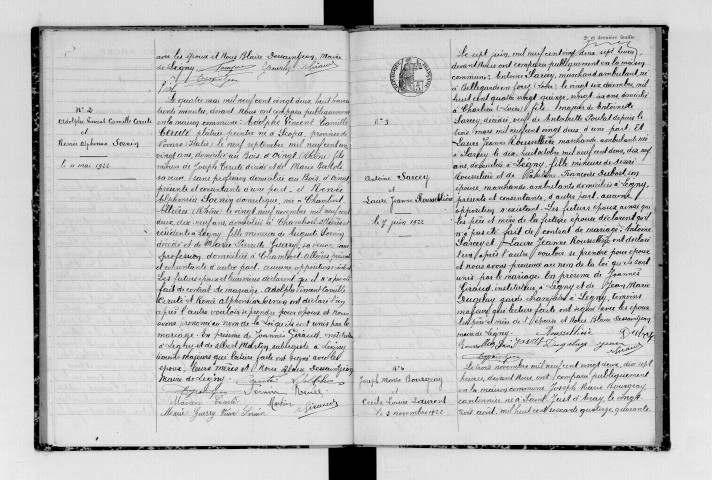 avec les époux et Nous Blaise Dessaintjean, Maire
de Légny
N° 2
Adolphe Vincent Camille Cerute
et
Renée Alphonsa Sornin
le 4 mai 1922
Le quatre mai mil neuf cent vingt deux, huit heures
trente minutes, devant Nous ont comparu publiquement
en la maison commune: Adolphe Vincent Camille
Cerute plâtrier peintre né à Scopa, province de
Novare (Italie) le neuf septembre mil neuf cent un,
vingt ans, domicilié au Bois d'Oingt (Rhône) fils
mineur de Joseph Cerute décédé et de Marie
sa veuve, sans profession domiciliée au Bois d'Oingt
présente et consentante d'une part et Renée
Alphonsa Sornin domestique, née à Chambost
Allières (Rhône) le vingt neuf novembre mil neuf cent
deux, dix neuf ans, domiciliée à Chambost Allières
résidente à Légny, fille mineure de Auguste Sornin
décédé et de Marie Pierrette Guerry, sa veuve, sans
profession, domiciliée à Chambost Allières présente
et consentante d'autre part, aucune opposition n'existant
Les futurs époux et leurs mères déclarent qu'il n'a pas été
fait de contrat de mariage. Adolphe Vincent Camille
Cerute et Renée Alphonsa Sornin ont déclaré l'un
après l'autre vouloir se prendre pour époux et Nous
avons prononcé au nom de la Loi qu'ils sont unis par le
mariage. En présence de Joannès Giraud, instituteur
à Légny et de Albert Martin aubergiste à Légny
témoins majeurs que lecture faite ont signé avec les
époux, leurs mères et Nous Blaise Dessaintjean
Maire de Légny.
Sornin Renée
Martin
Giraud
Marie Guerry Veuve Sornin
2e et dernière feuille
N° 3
Antoine Sarcey
et
Laure Jeanne Rousselière
le 7 juin 1922
Le sept juin, mil neuf cent vingt deux, sept heures
devant Nous ont comparu publiquement en la maison
commune: Antoine Sarcey, marchand ambulant né
à Bellegarde en Forez (Loire) le vingt six décembre, mil
huit cent quatre vingt quinze, vingt six ans domicilié
à Charlieu (Loire) fils majeur de Antoinette
Sarcey décédée, veuf de Antoinette Poulet depuis le
trois mars mil neuf cent vingt deux d'une part. Et
Laure Jeanne Rousselière marchande ambulante née
à Sarcey le dix huit octobre mil neuf cent deux, dix neuf
ans domiciliée à Légny, fille mineure de Henri
Rousselière et de Françoise Dubost son
épouse, marchands ambulants domiciliés à Légny,
présents et consentants, d'autre part, aucune
opposition n'existant. Les futurs époux ainsi que
les père et mère de la future épouse déclarent qu'il
n'a pas été fait de contrat de mariage. Antoine
Sarcey et Laure Jeanne Rousselière ont déclaré
l'un après l'autre vouloir se prendre pour époux
et nous avons prononcé au nom de la loi qu'ils sont
unis par le mariage. En présence de Joannès
Giraud, instituteur à Légny et de Jean Marie
garde champêtre à Légny, témoins
majeurs, que lecture faite ont signé avec les époux
les père et mère de l'épouse et Nous Blaise Dessaintjean
maire de Légny.
Rousselière
Giraud
N° 4
Joseph Marie Bourgeay
Cécile Louise Laurent
le 3 novembre 1922
Le trois novembre mil neuf cent vingt deux, dix sept
heures, devant Nous, ont comparu publiquement
en la maison commune Joseph Marie Bourgeay,
cantonnier né à Saint Just d'Avray, le vingt
trois août, mil huit cent soixante quatorze, quarante